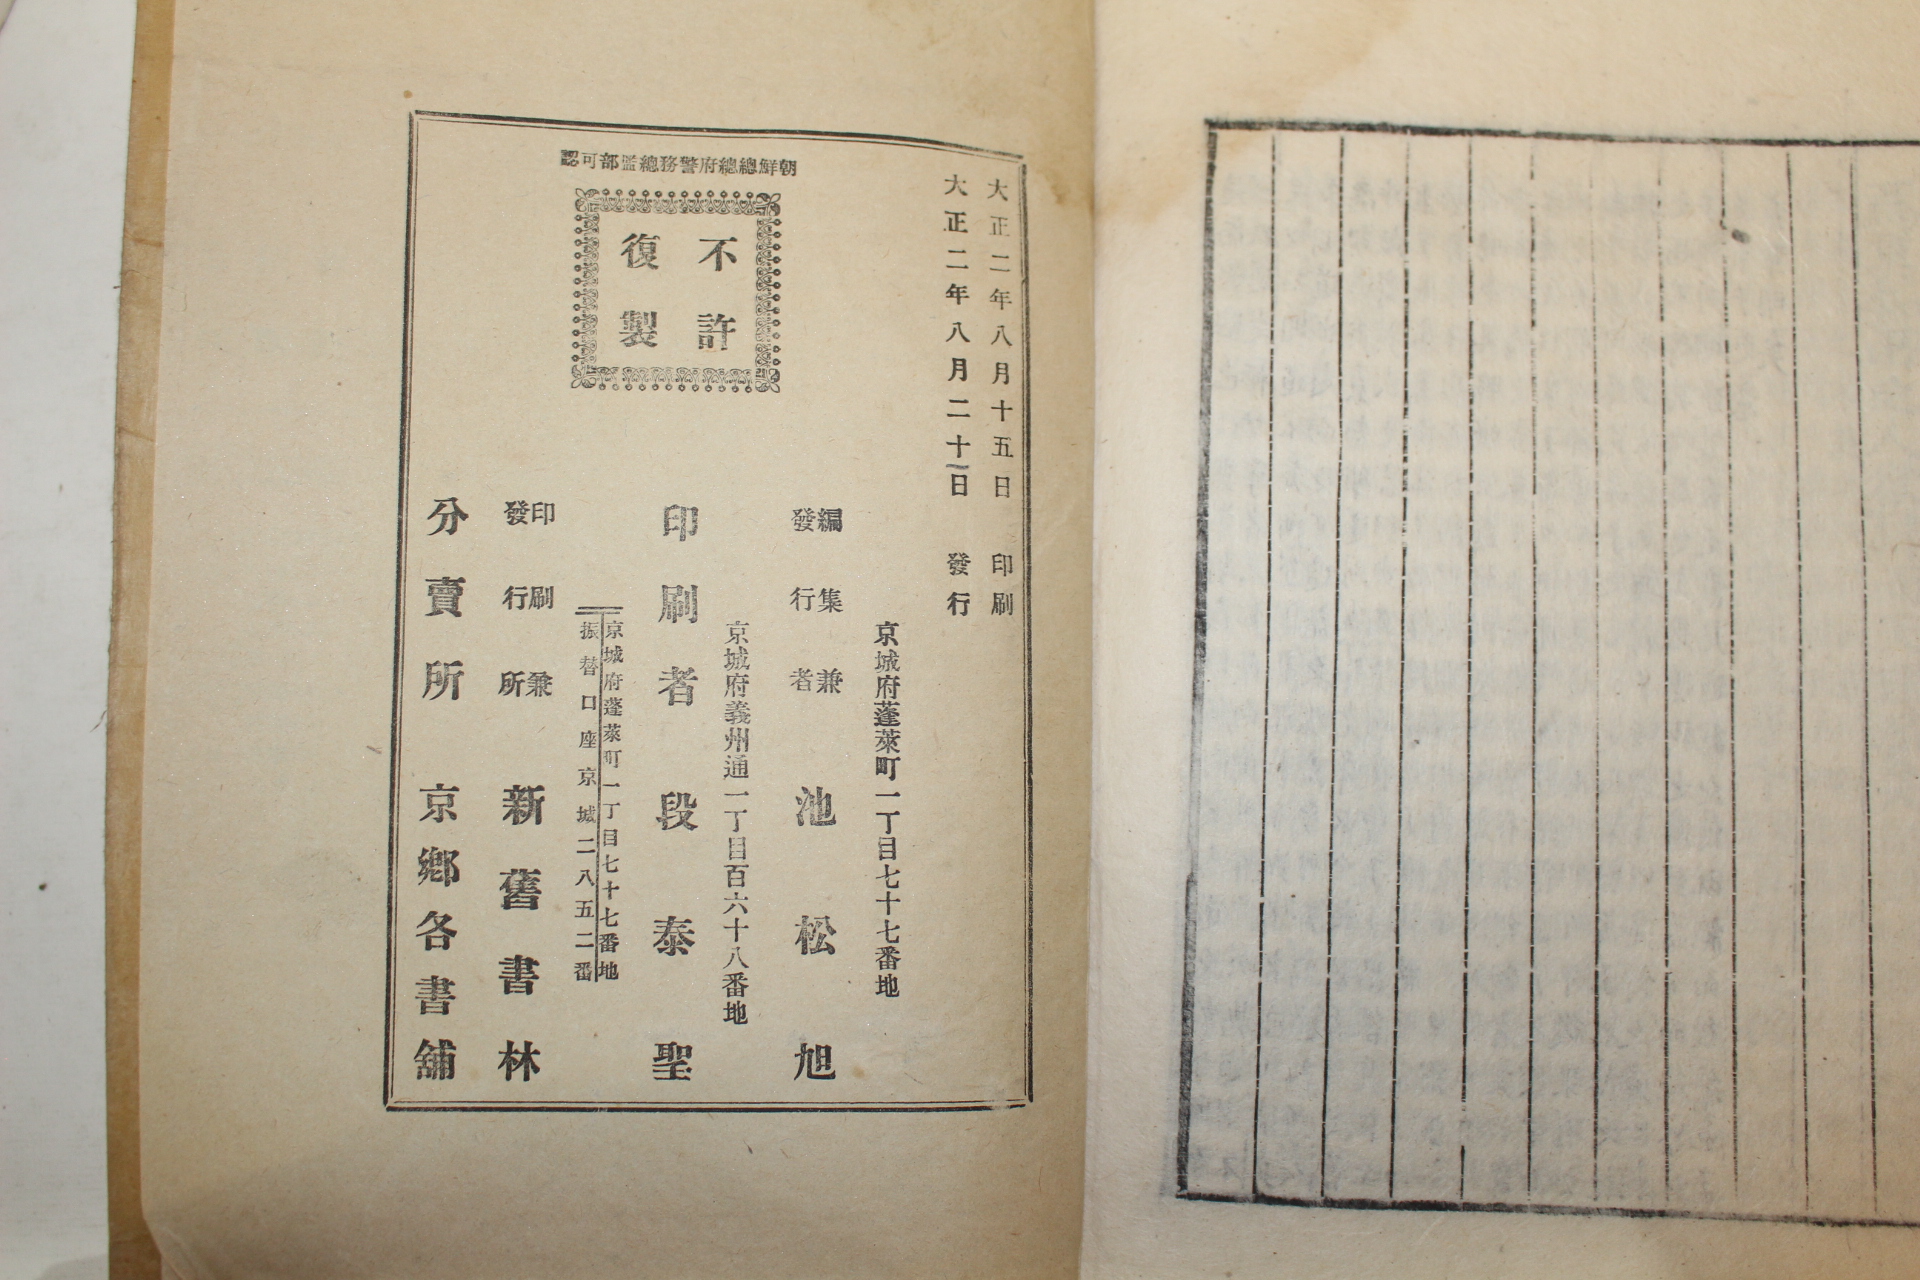 大正二年八月十五日 印刷
大正二年八月二十一日 發行
朝鮮總總府警務總監部可認
不許
復製
京城府蓬萊町一丁目七十七番地
編集兼
發行者
池松旭
京城府義州通一丁目百六十八番地
印刷者 段泰聖
京城府蓬萊町一丁目七十七番地
振替口座京城二八五二番
印刷兼
發行所
新舊書林
分賣所 京鄉各書舖